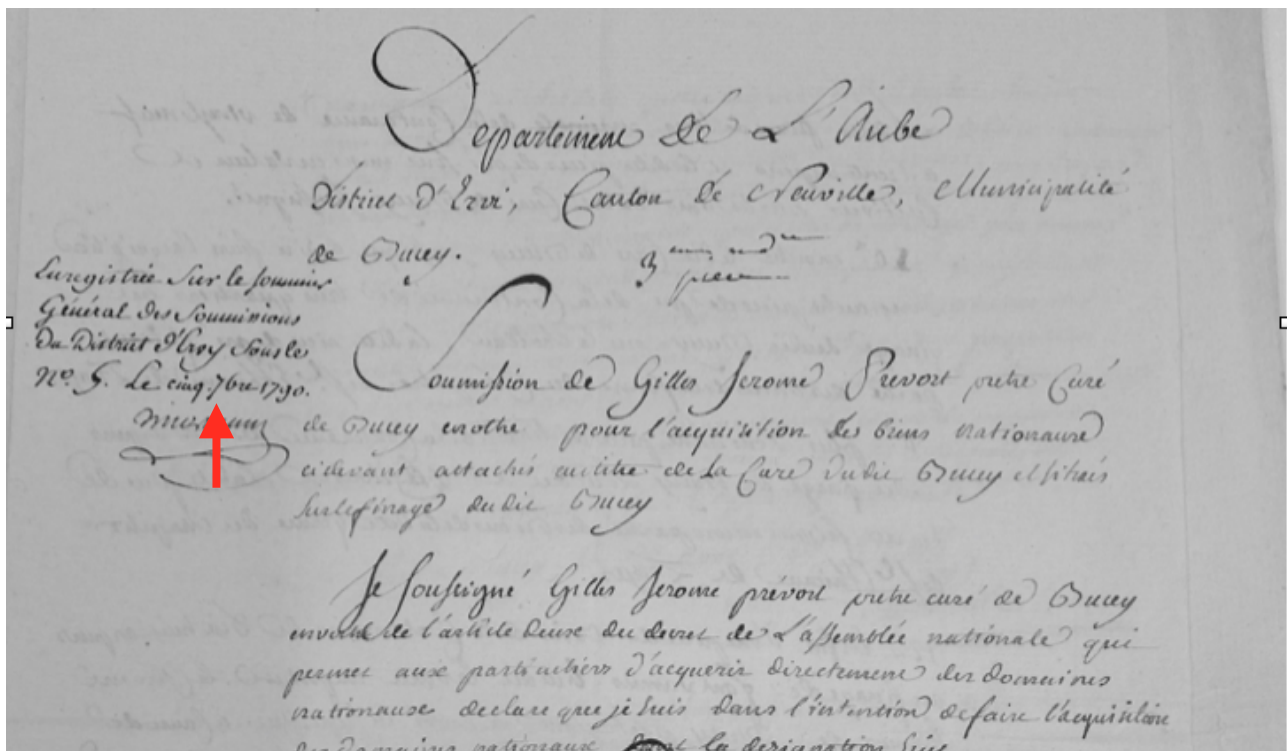 Departement De L'Aube
District d'Ervi, Canton de Neuville, Municipalité
de Bucey.
Enregistrée Sur le sommier
Général des Soumissions
Du District d'Ervy Sous le
N°. 5. Le cinq 7bre 1790.
Soumission de Gilles Jerome Prevort pretre Curé
de Bucey enothe pour l'acquisition des biens nationaux
cidevant attachés autitre de La Cure dudit Bucey et situés
surlefinage dudit Bucey
Je soussigné Gilles Jerome prévort pretre curé de Bucey
de l'article deux du decret de L'assemblée nationale qui
permet aux particuliers d'acquerir directement des domaines
nationaux declare que je suis dans l'intention defaire l'acquisition
des domaines nationaux dont la designation suit